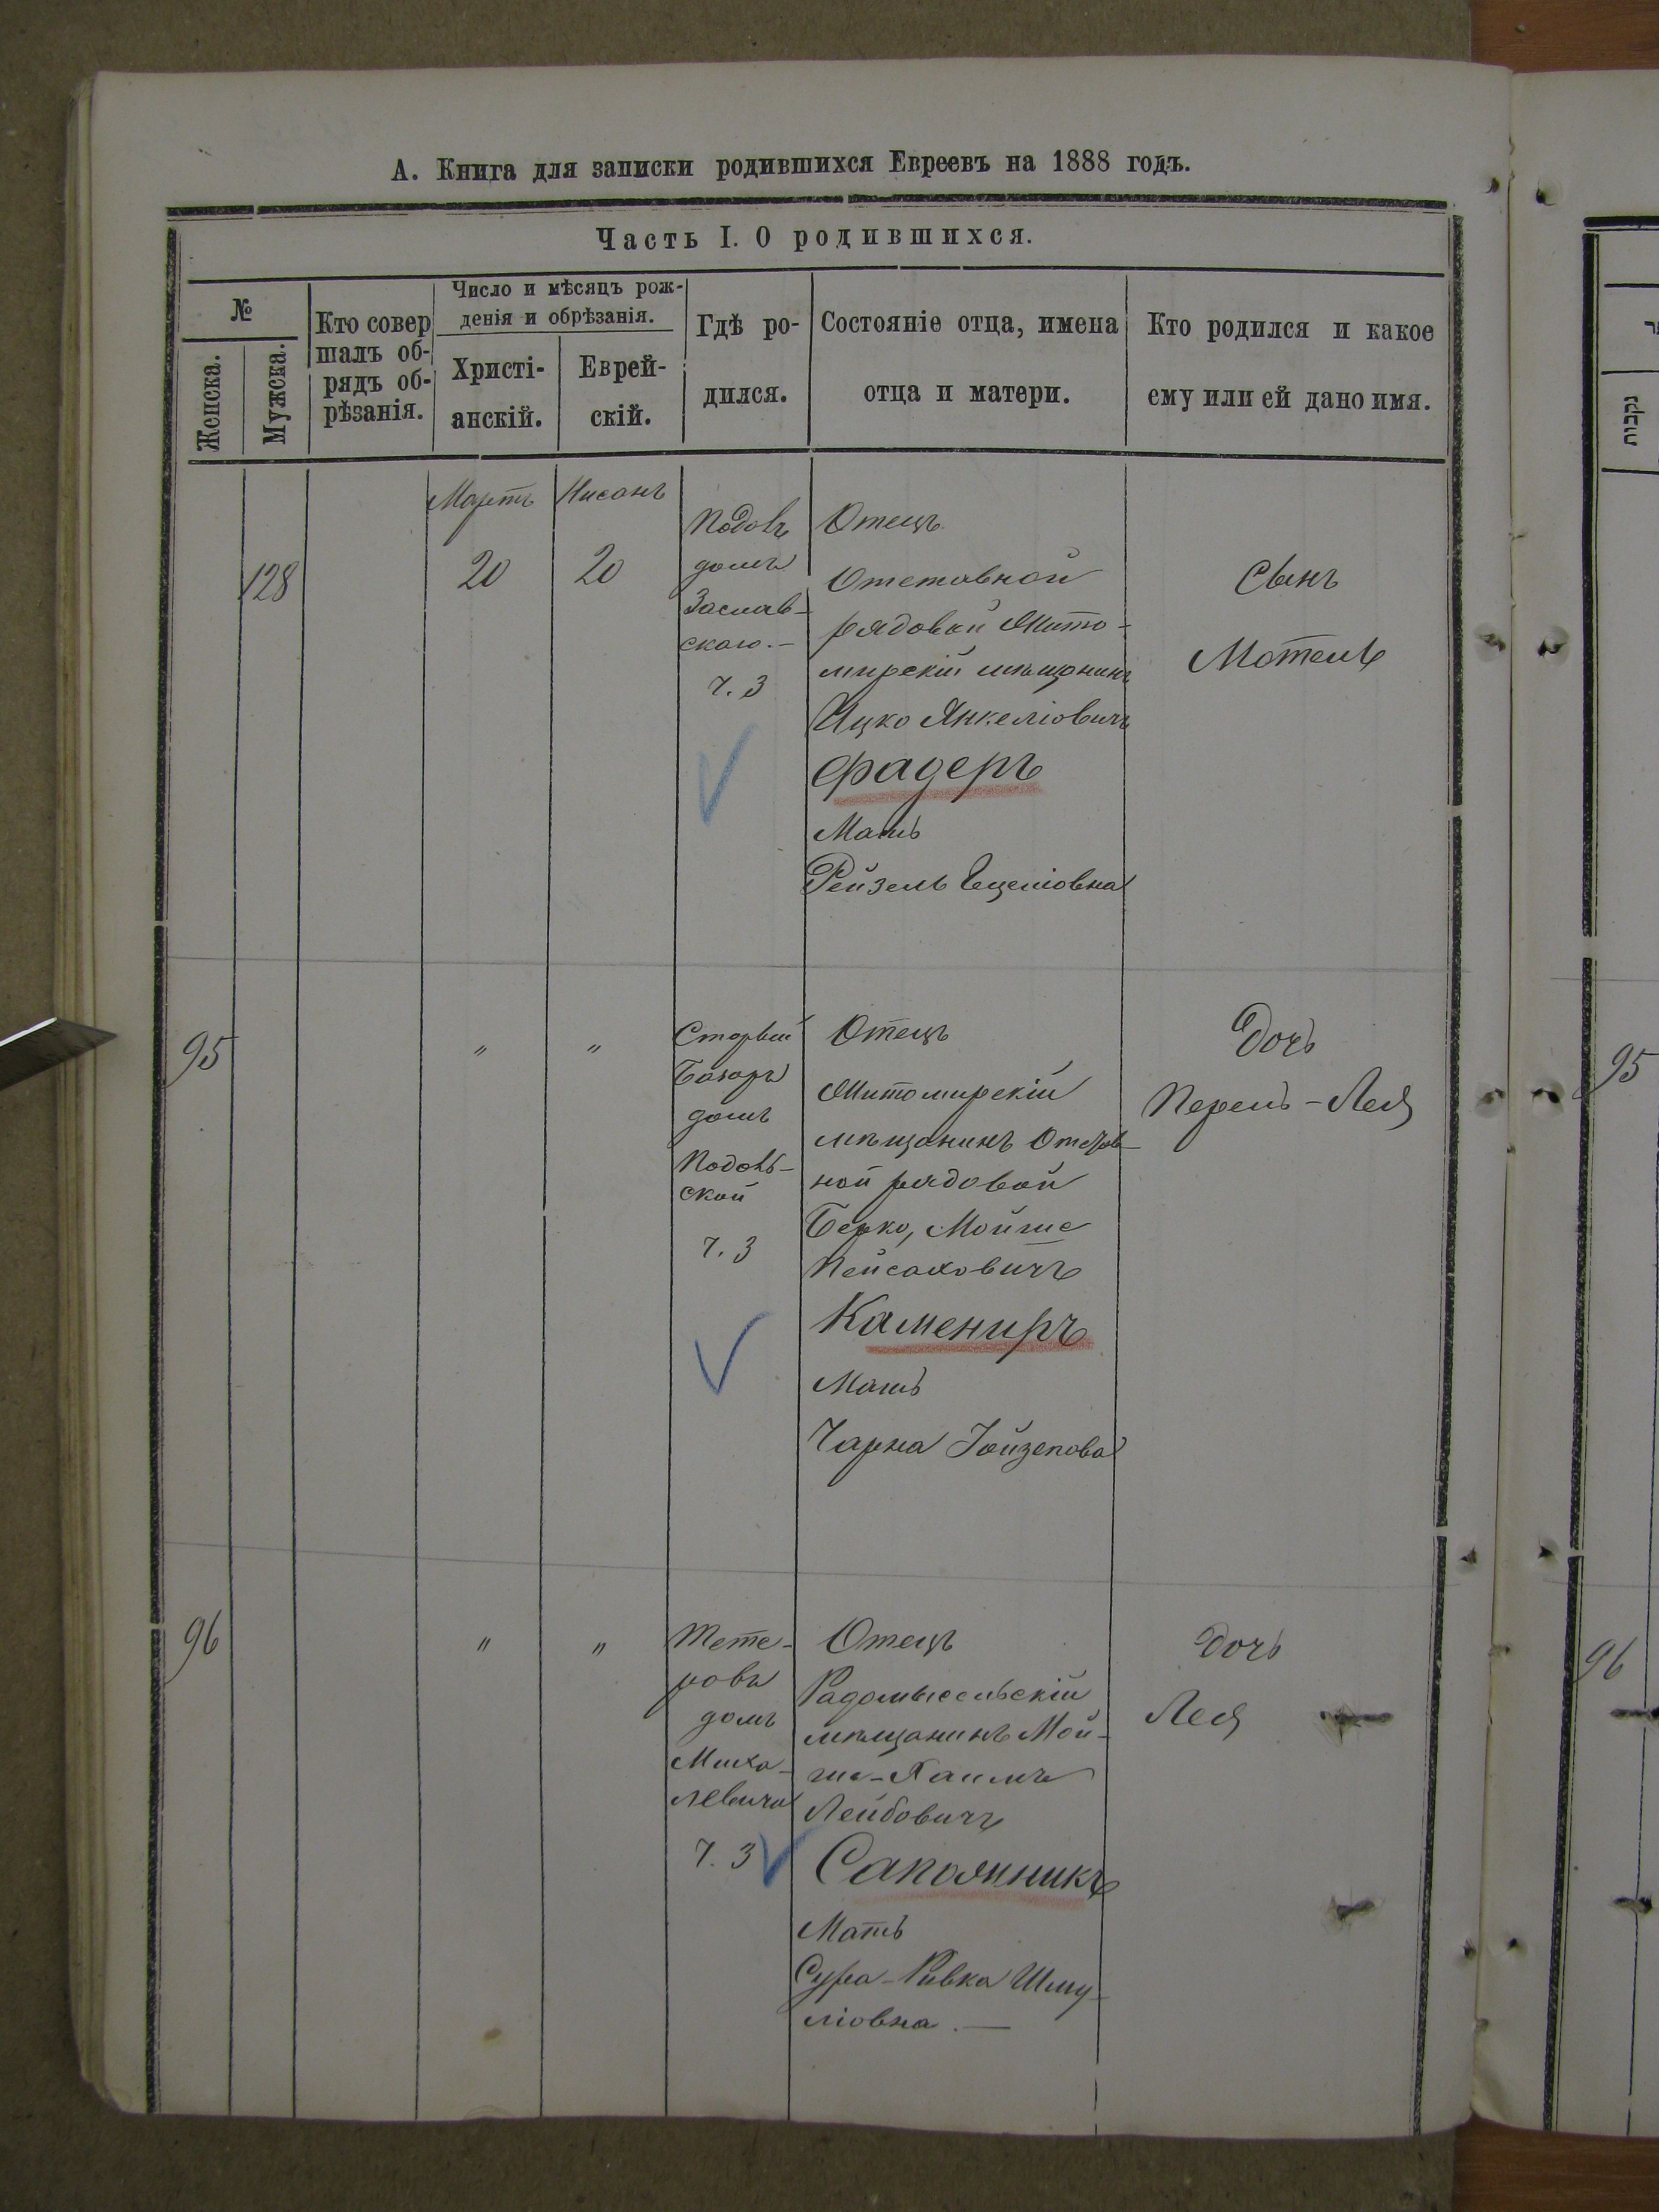 А. Книга для записки родившихся Евреевъ на 1888 годъ.
Часть I. О родившихся.
№
Женска.
Мужска.
Кто совер
шалъ об-
рядъ об-
рѣзанія.
Число и мѣсяцъ рож-
денія и обрѣзанія.
Христі-
анскій.
Еврей-
скій.
Гдѣ ро-
дился.
Состояніе отца, имена
отца и матери.
Кто родился и какое
ему или ей дано имя.
128
Мартъ
20
Нисанъ
20
домъ
Заслав-
скаго.-
ч. 3
Отецъ
Отставной
рядовой Жито-
мирскій мѣщанинъ
Ицко Янкеліовичъ
Фадеръ
Мать
Рейзель Ецеліовна
Сынъ
Мотель
95
"
"
Старый
Базаръ
домъ
Подоль-
ской
ч. 3
Отецъ
Житомирскій
мѣщанинъ Отстав-
ной рядовой
Берко, Мойше
Пейсаховичъ
Камениръ
Мать
Чарна Іойзепова
Дочь
Перель-Лея
96
"
"
Тете-
ровъ
домъ
Миха-
левича
ч. 3
Отецъ
Радомысельскій
мѣщанинъ Мой-
ше-Хаимъ
Лейбовичъ
Сапожникъ
Мать
Сура-Ривка Шму-
ліовна.-
Дочь
Лея
נקבות
95
96